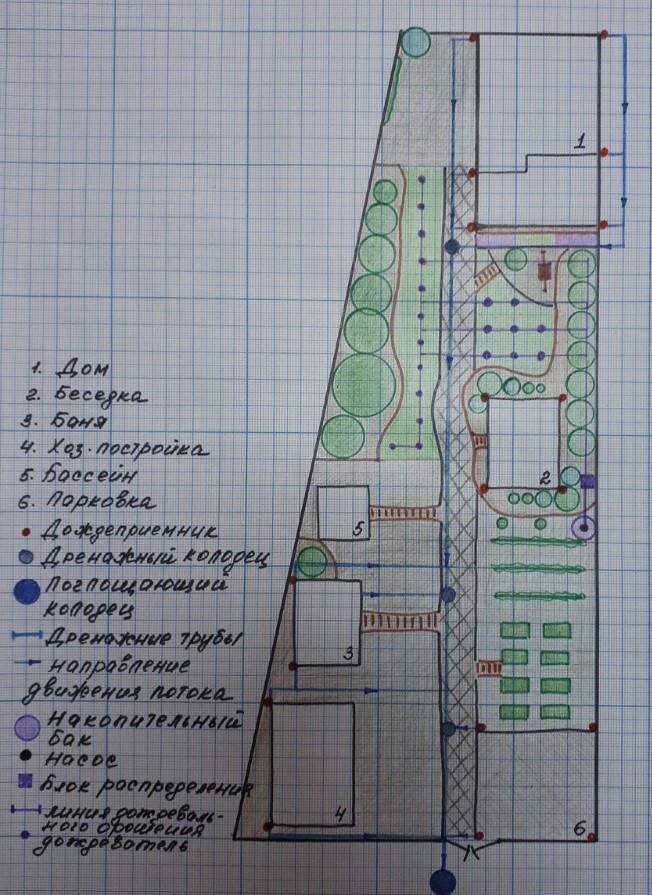 1
1. Дом
2. Беседка
3. Баня
4. Хоз. постройка
5. Бассейн
6. Парковка
2
Дождеприемник
5
Дренажный колодец
Поглощающий
колодец
Дренажные трубы
3
направление
движения потока
Накопительный
бак
насос
Блок распределения
линия дождеваль-
ного орошения
4
6
дождеватель